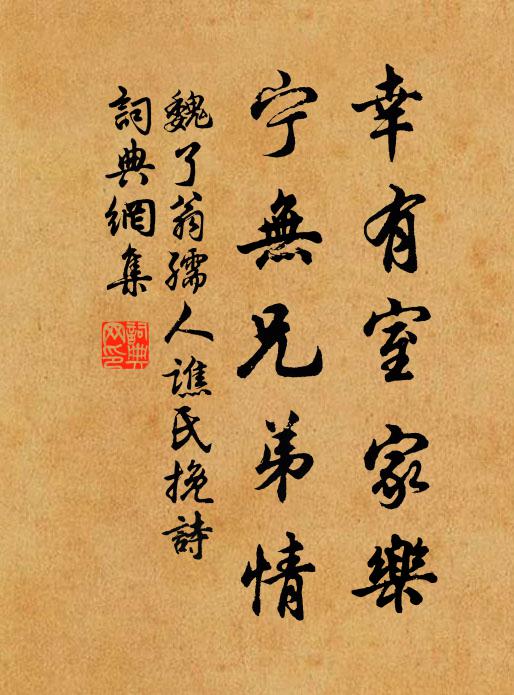 幸有室家樂
宁無兄弟情
魏了翁孺人譙氏挽詩
詞典網集
詞典网印